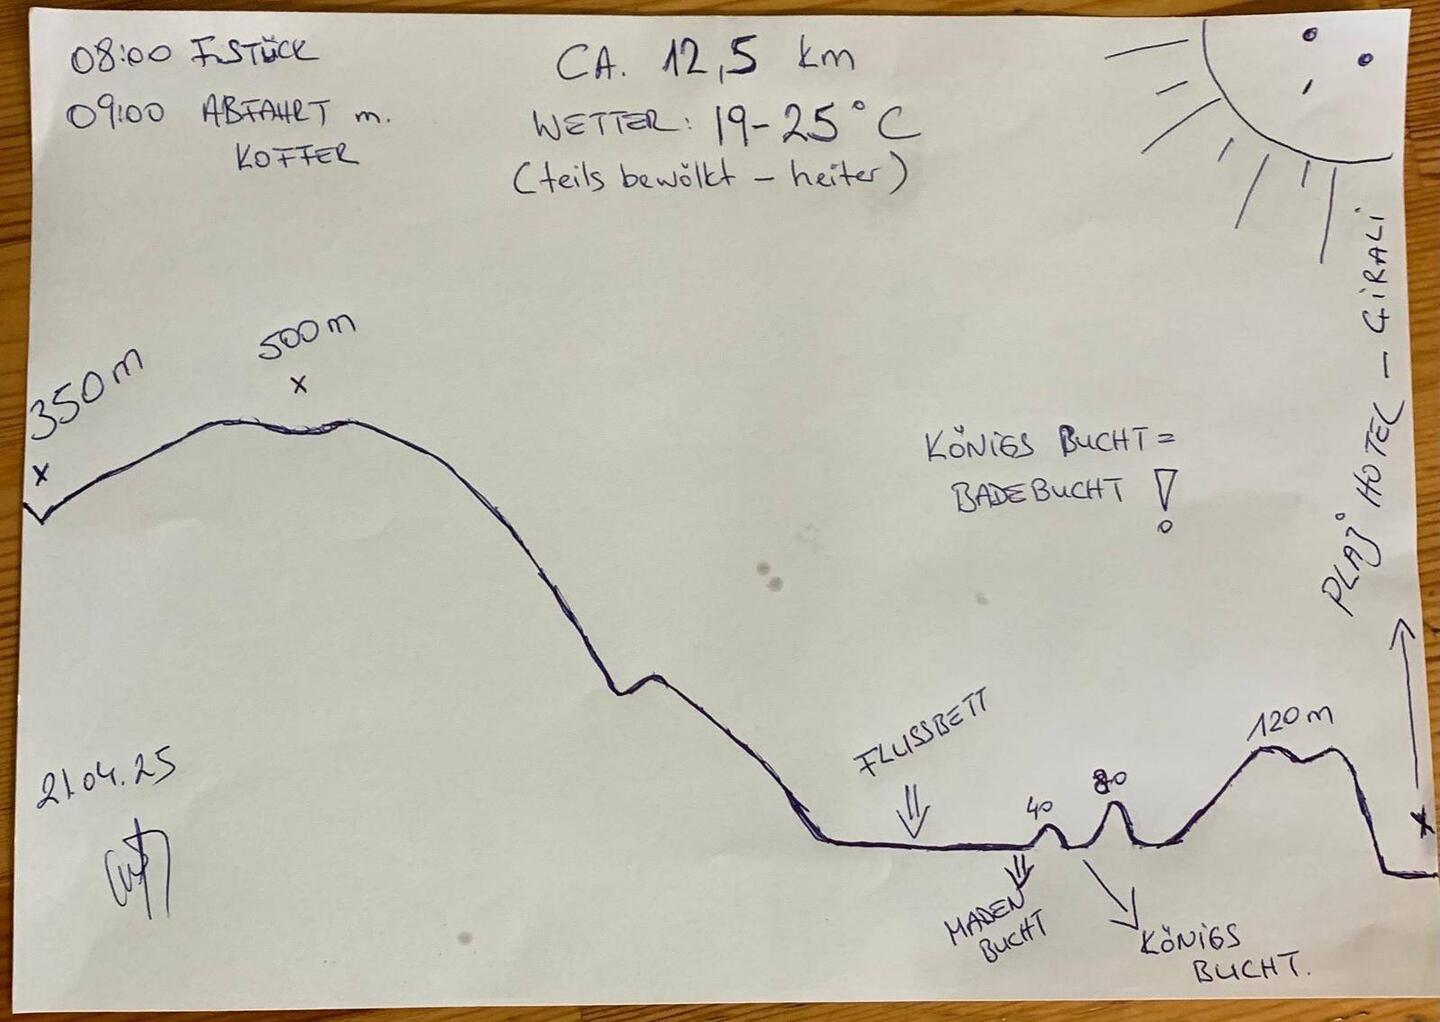 08:00 F.STÜCK
09:00 ABFAHRT m.
KOFFER
CA. 12,5 km
WETTER: 19-25°C
(teils bewölkt – heiter)
350m
x
500m
x
KÖNiGS BUCHT =
BADEBUCHT !
PLAJ HOTEL – ÇiRALi
x
21.04.25
FLUSSBETT
40
80
120m
MADEN
BUCHT
KÖNiGS
BUCHT.